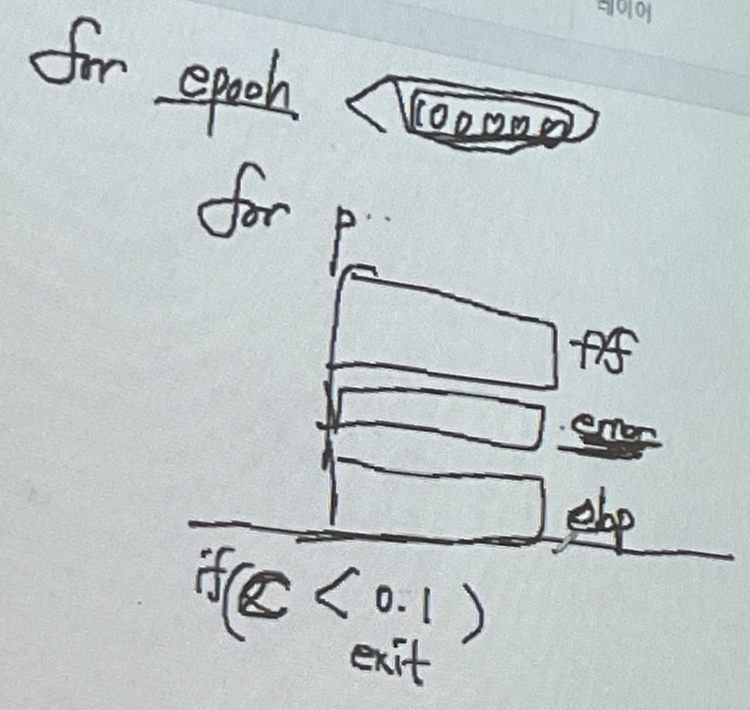 레이어
for epoch < 100000
for p..
ff
error
ebp
if(E < 0.1)
exit